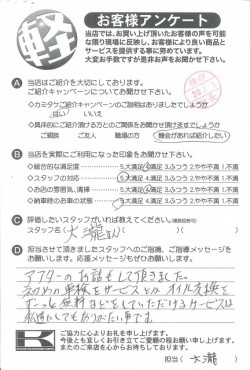 軽
お客様アンケート
当店では、お買い上げいただいたお客様の声を可能
な限り現場に反映し、お客様により良い商品と
サービスを提供する事に努めています。
大変お手数ですが是非お声をお聞かせ下さい。
A 当店はご紹介を大切にしております。
ご紹介キャンペーンについてお聞かせ下さい。
◇カミタケご紹介キャンペーンのご説明はありましたでしょうか
はい いいえ
◇具体的にご紹介頂ける方とのご関係をお聞かせ頂けますでしょうか
ご親族 ご友人 職場の方 機会があれば紹介したい
B 当店を実際にご利用になった印象をお聞かせ下さい。
◇総合的な満足度 5.大満足 4.満足 3.ふつう 2.やや不満 1.不満
◇スタッフの対応 5.大満足 4.満足 3.ふつう 2.やや不満 1.不満
◇お店の雰囲気、清掃 5.大満足 4.満足 3.ふつう 2.やや不満 1.不満
◇納車時のお車の状態 5.大満足 4.満足 3.ふつう 2.やや不満 1.不満
C 評価したいスタッフがいれば教えてください。
スタッフ名( 大瀧さん )
D 担当させて頂きましたスタッフへのご指摘、ご指導メッセージを
お願いします。ご応援メッセージもぜひお願いします。
アフターのお話もして頂きました。
初めの車検をサービスとかオイル交換を
ずーっと無料などをしていただけるサービスは
私達にしてもありがたい事です。
K
ご協力に心よりお礼を申し上げます。
今後とも宜しくお引き立てご愛顧の程お願い申し上げます。
またのご来店を心からお待ちしております。
担当( 大瀧 )